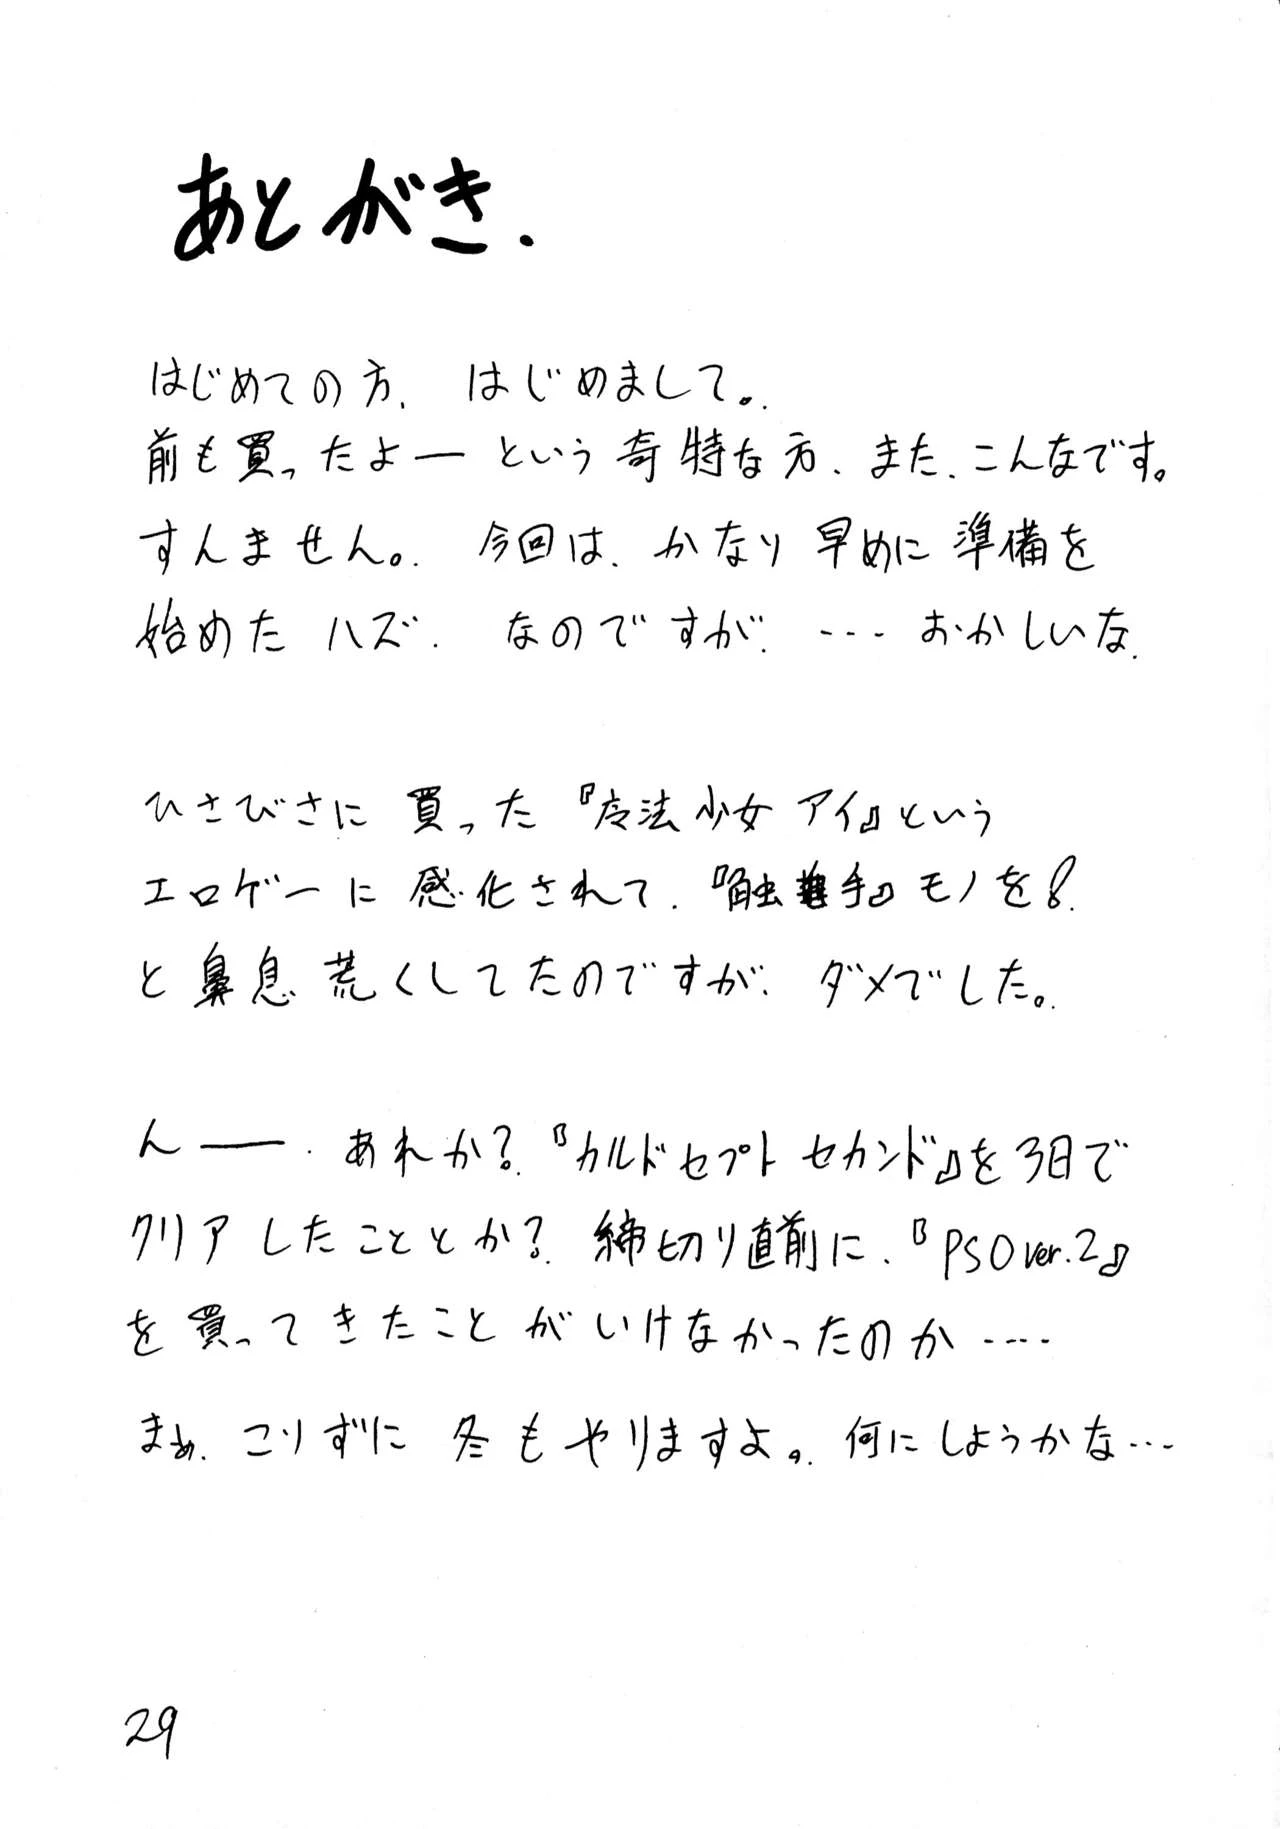 あとがき.
はじめての方、はじめまして。
前も買ったよーという奇特な方、また、こんなです。
すんません。今回は、かなり早めに準備を
始めたハズ、なのですが、・・・おかしいな、
ひさびさに買った『魔法少女アイ』という
エロゲーに感化されて、『触手』モノを!
と鼻息荒くしてたのですが、ダメでした。
んー、あれか?『カルドセプトセカンド』を3日で
クリアしたこととか?締切り直前に、『PSO ver.2』
を買ってきたことがいけなかったのか・・・・
まぁ、こりずに冬もやりますよ。何にしようかな・・・
29